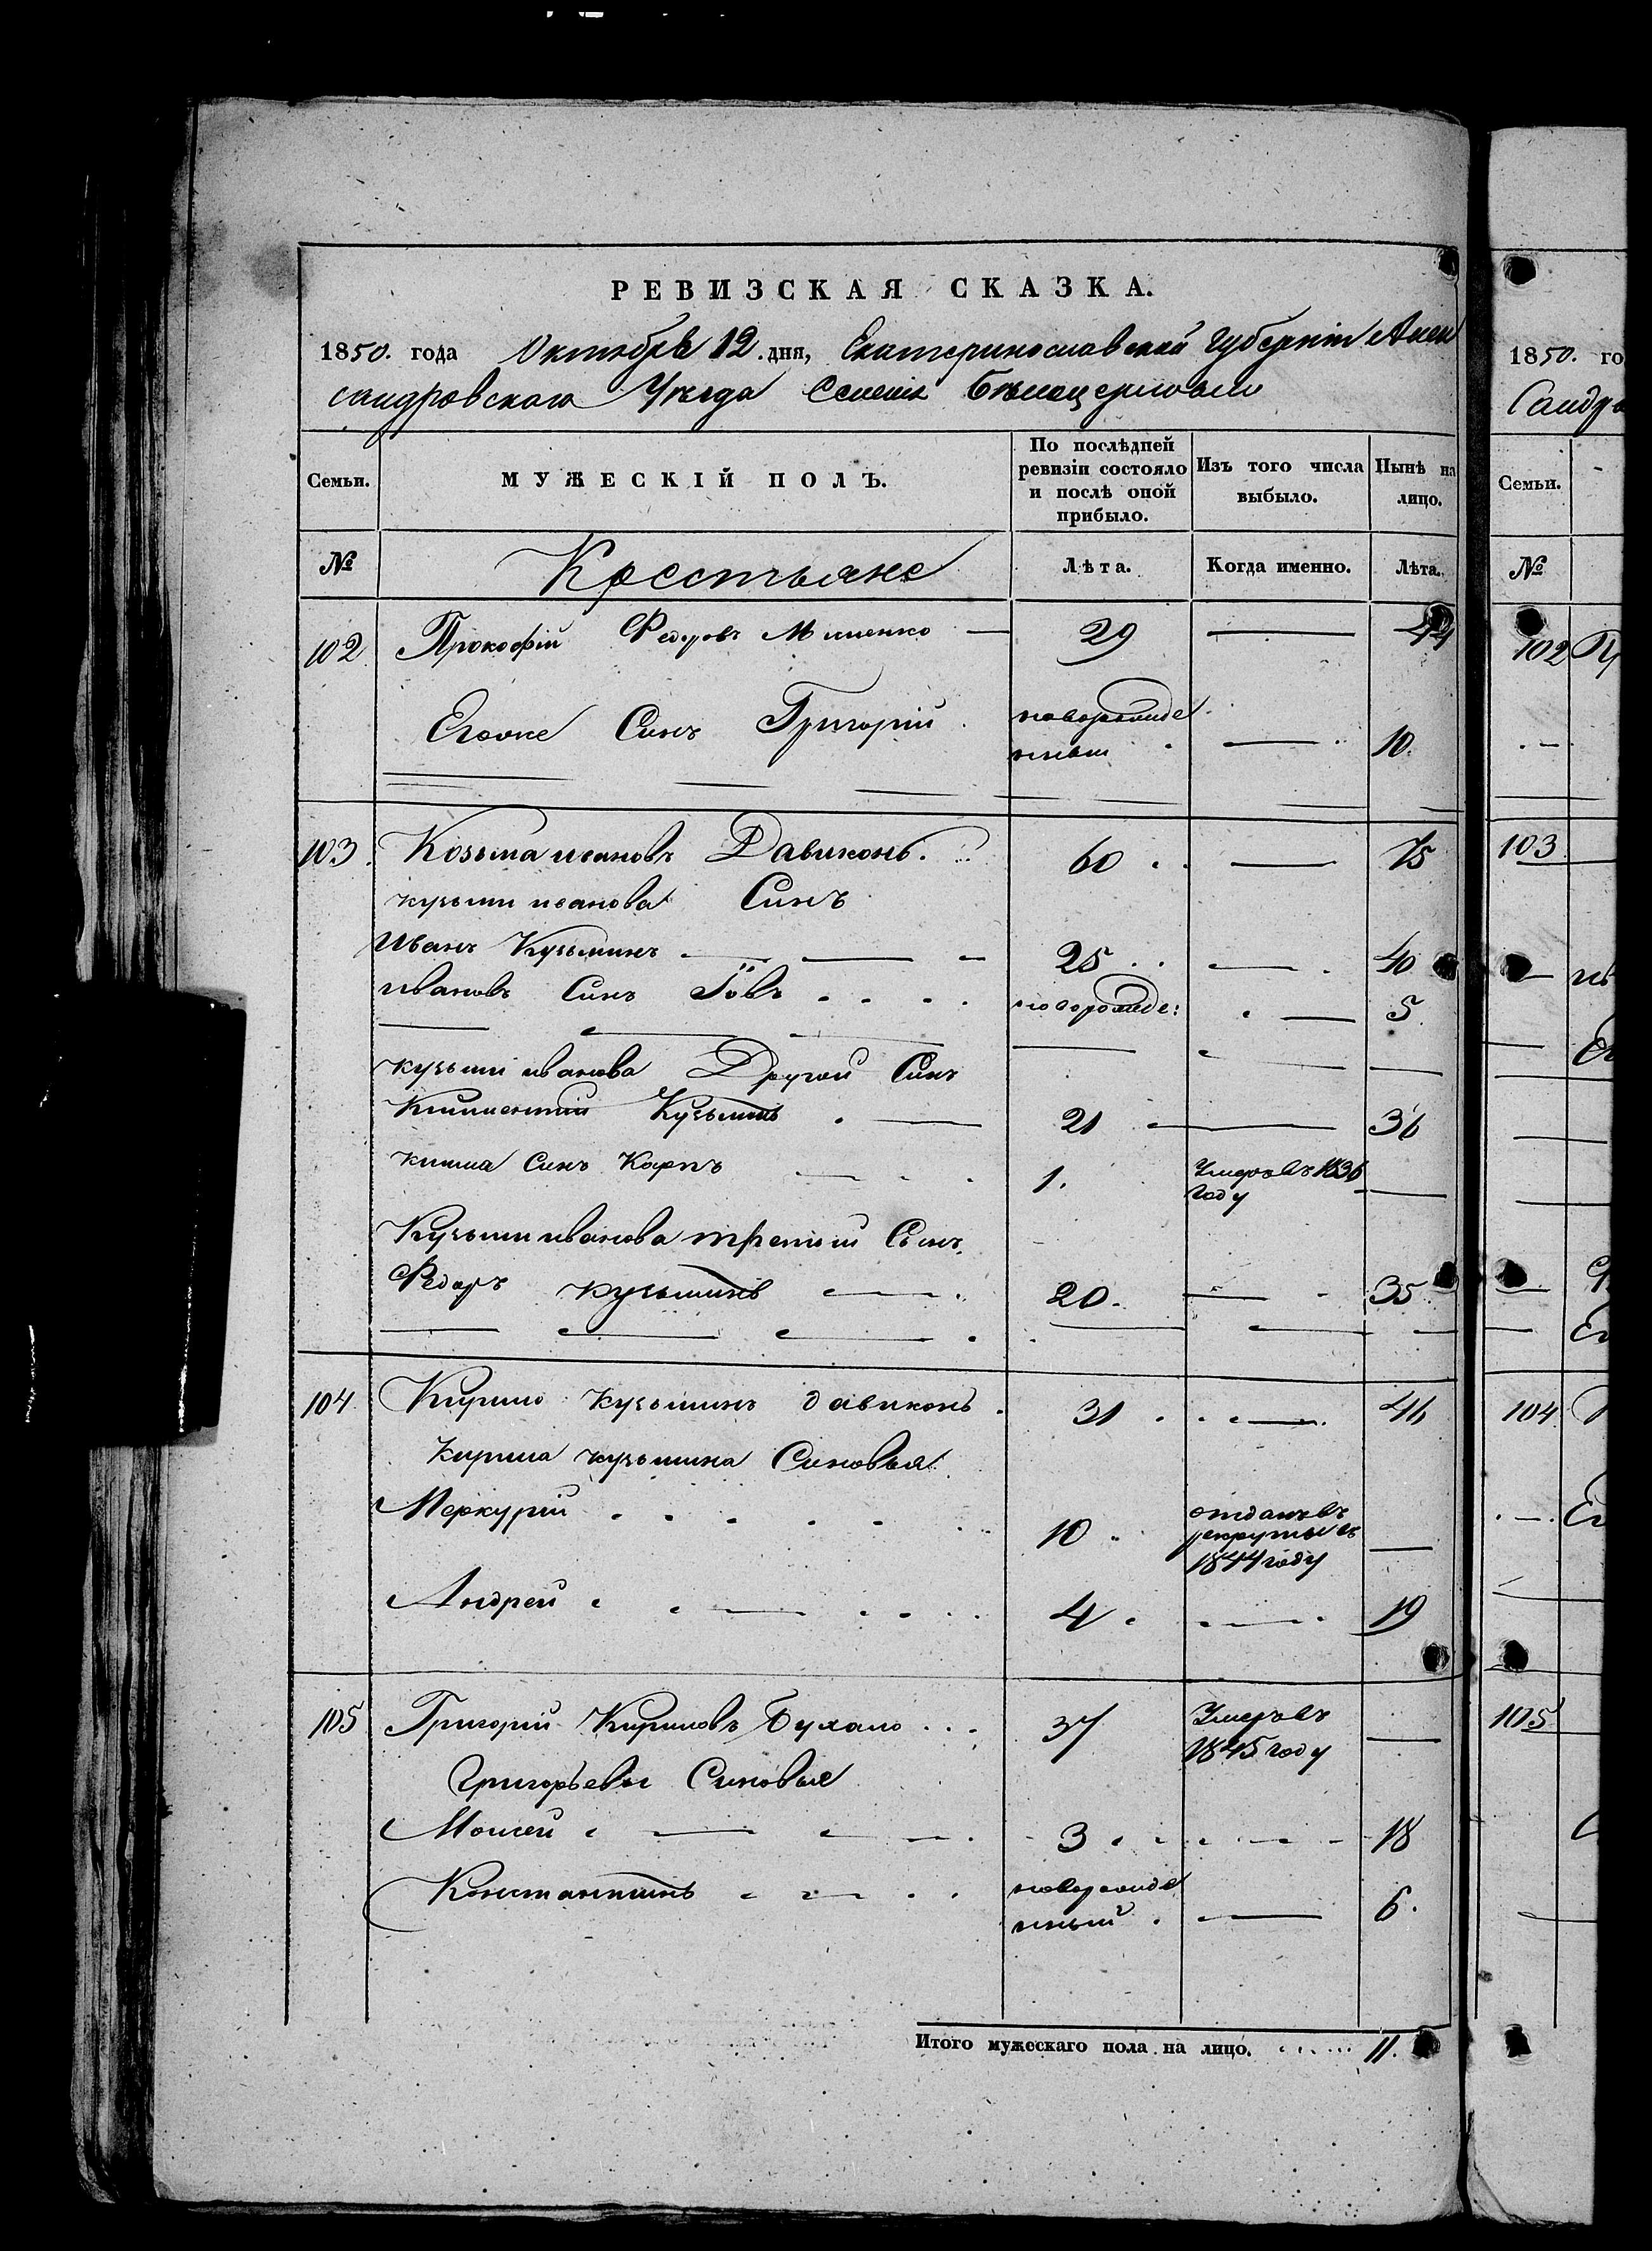 РЕВИЗСКАЯ СКАЗКА.
1850. года Октября 12 дня, Екатеринославской Губерніи Алек
сандровского Уѣзда Селенія Бѣлоцерковки
Семьи. МУЖЕСКІЙ ПОЛЪ. По послѣдней ревизіи состояло и послѣ оной прибыло. Изъ того числа выбыло. Нынѣ на лицо.
№ Крестьяне Лѣта. Когда именно. Лѣта.
102 Прокофій Федоровъ 29 — 44
Егоже Синъ Григорій новорожде
нный — 10.
103. Козьма ивановъ Давиконь. 60 — 75
кузьми иванова Синъ
Иванъ Кузьминъ 25 — 40
ивановъ Синъ Іовъ новорожде: — 5.
кузьми иванова Другой Синъ
Климентий Кузьминъ 21 — 36
клима Синъ Карпъ 1. Умеръ въ 1836
году —
Кузьми иванова третии Сынъ
Федоръ кузьминъ 20. — 35
104. Кирило кузьминъ давиконь. 31 — 46
Кирила кузьмина Синовья
Меркурій 10 отданъ въ
рекруты въ
1844 году —
Андрей 4 — 19
105 Григорій Кириловъ Бухало 37 Умеръ въ
1845 году —
Григорьевы Синовья
Моисей 3 — 18
Константинъ новорожде
нный — 6.
Итого мужескаго пола на лицо. 11.
1850. го
Сандро
Семьи.
№
102
103
104
105